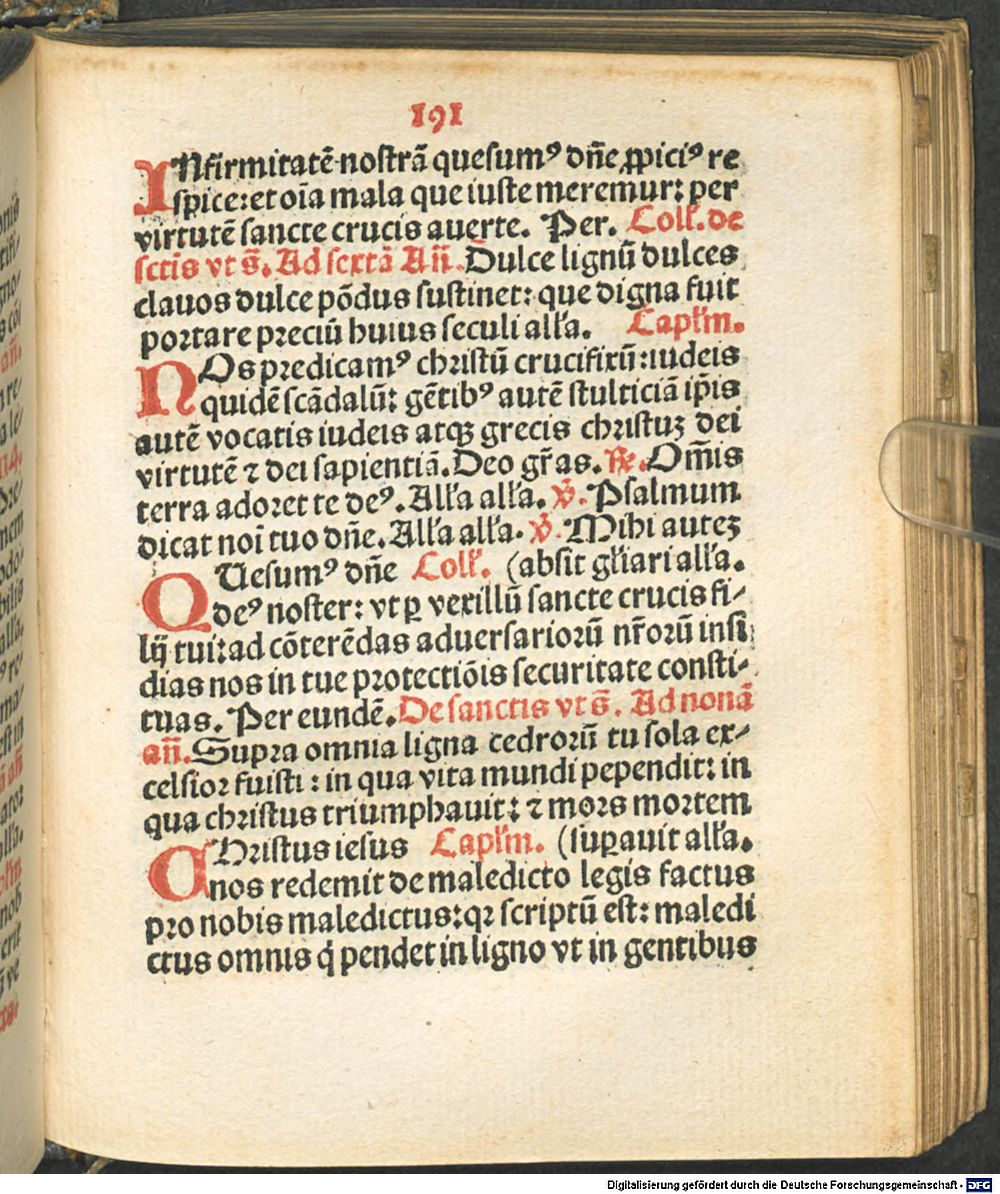 191
INfirmitatē nostrā quesumꝰ dñe ꝓpiciꝰ re
spice: et oīa mala que iuste meremur: per
virtutē sancte crucis auerte. Per. Coll'. de
sctis vt s̄. Ad sextā Añ. Dulce lignū dulces
clauos dulce põdus sustinet: que digna fuit
portare preciū huius seculi alľa. Capľm.
NOs predicamꝰ christū crucifixū: iudeis
quidē scādalū: gētibꝰ autē stulticiā ip̄is
autē vocatis iudeis atqꝫ grecis christuꝫ dei
virtutē ⁊ dei sapientiā. Deo gr̄as. ℟. Om̄is
terra adoret te deꝰ. Alľa alľa. ℣. Psalmum
dicat noī tuo dñe. Alľa alľa. ℣. Mihi auteꝫ
QUesumꝰ dñe Coll'. (absit gľiari alľa.
deꝰ noster: vt ꝑ vexillū sancte crucis fi⸗
lij tui: ad cōterēdas aduersariorū nr̄orū insi
dias nos in tue protectiōis securitate consti⸗
tuas. Per eundē. De sanctis vt s̄. Ad nonā
añ. Supra omnia ligna cedrorū tu sola ex⸗
celsior fuisti: in qua vita mundi pependit: in
qua christus triumphauit: ⁊ mors mortem
CHristus iesus Capľm. (suꝑauit alľa.
nos redemit de maledicto legis factus
pro nobis maledictus: qꝛ scriptū est: maledi
ctus omnis q̇ pendet in ligno vt in gentibus
Digitalisierung gefördert durch die Deutsche Forschungsgemeinschaft - DFG